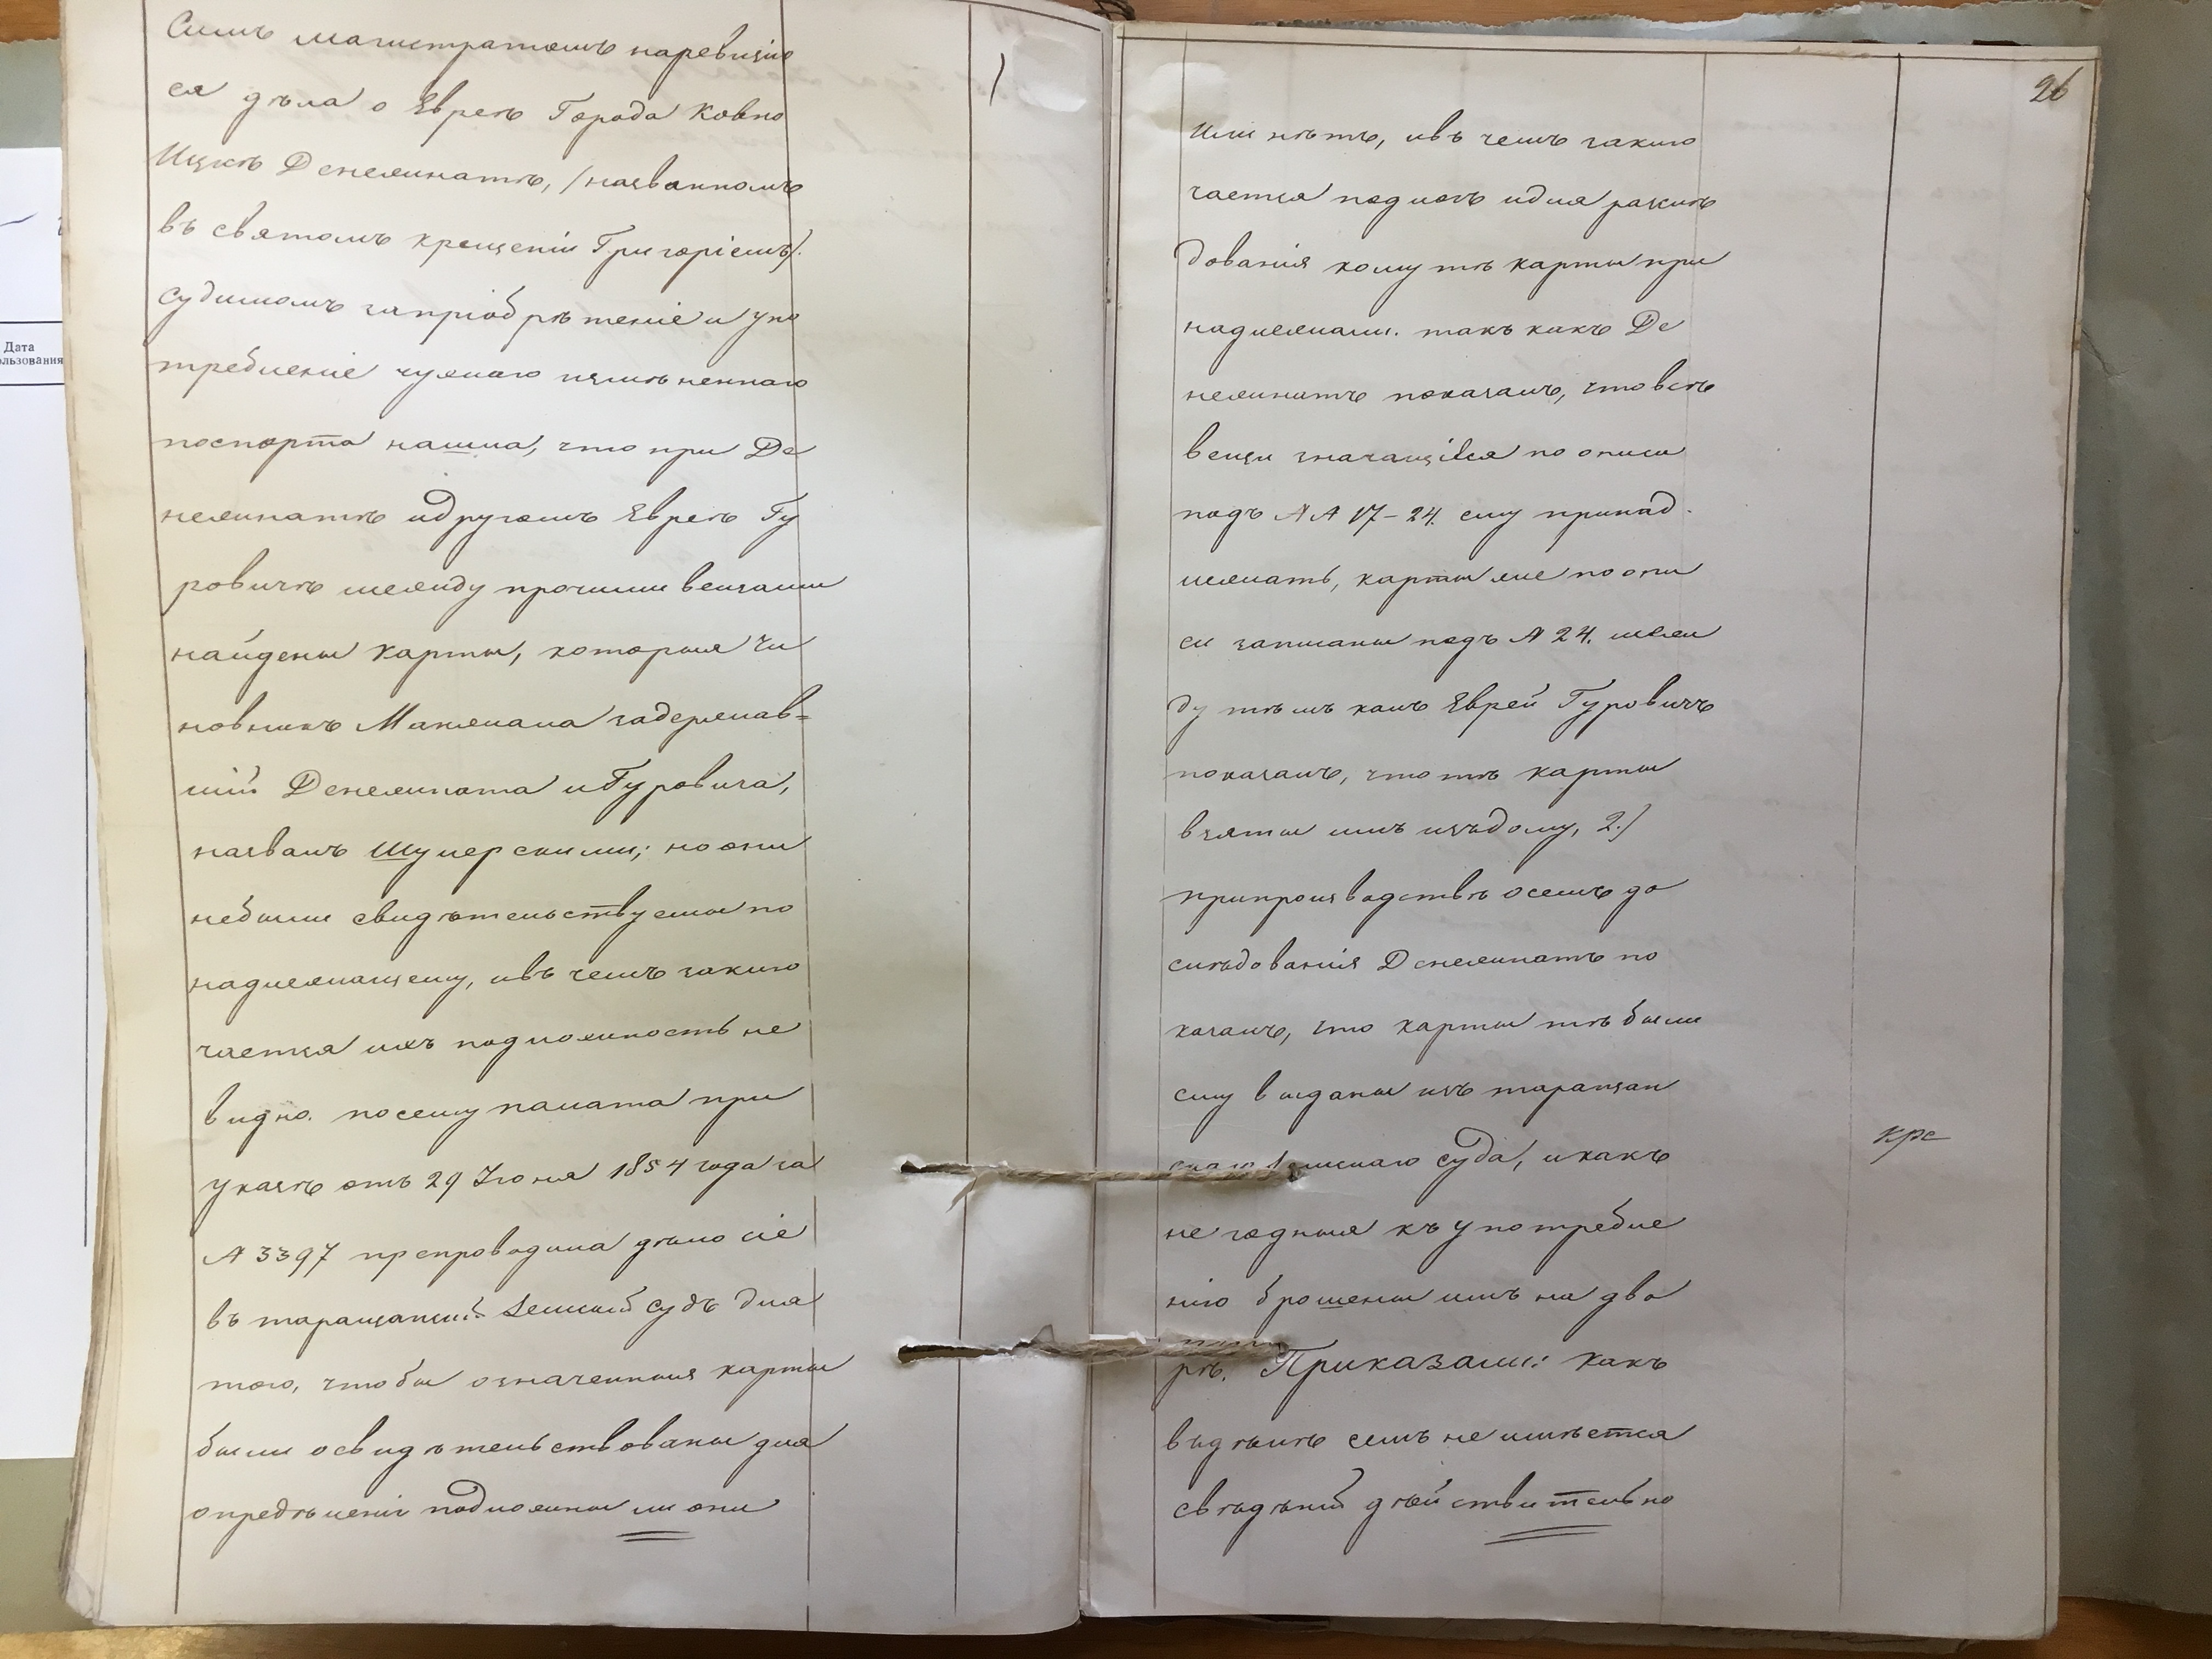 Симъ магистратомъ наревизію
ся дѣла о Евреѣ Города Ковно
Ицкѣ Денежнатѣ, /названномъ
въ святомъ крещеніи Григоріемъ/.
судимомъ запріобрѣтеніе и упо
требленіе чужаго измѣненнаго
паспорта нашла, что при Де
нежнатѣ идругомъ Евреѣ Гу
ровичѣ между прочими вещами
найдены карты, которыя Чи
новникъ Манжала задержав=
шій Денежната иГуровича,
назвалъ Шулерскими; но они
небыли свидѣтельствуемы по
надлежащему, ивъ чемъ заклю
чается ихъ подложность не
видно. посему палата при
указѣ отъ 29 Іюня 1854 года за
№ 3397 препроводила дѣло сіе
въ таращанскій Земскій судъ для
того, чтобы означенныя карты
были освидѣтельствованы для
опредѣленія подложны ли они
Дата
ользования
26
Или нѣтъ, ивъ чемъ заклю
чается подлогъ идля разслѣ
дованія кому тѣ карты при
надлежали. такъ какъ Де
нежнатъ показалъ, что всѣ
вещи значащіеся по описи
подъ № № 17-24. ему принад.
лежатъ, карты же по опи
си записаны подъ № 24. меж
ду тѣмъ какъ Еврей Гуровичъ
показалъ, что тѣ карты
взяты имъ изъдому, 2./
припроизводствѣ осемъ до
слѣдованія Денежнатъ по
казалъ, что карты тѣ были
ему выданы изъ таращан
скаго Земскаго суда, и какъ
не годныя къ употребле
нію брошены имъ на дво
рѣ. Приказали: какъ
въдѣлѣ семъ не имѣется
свѣдѣній дѣйствительно